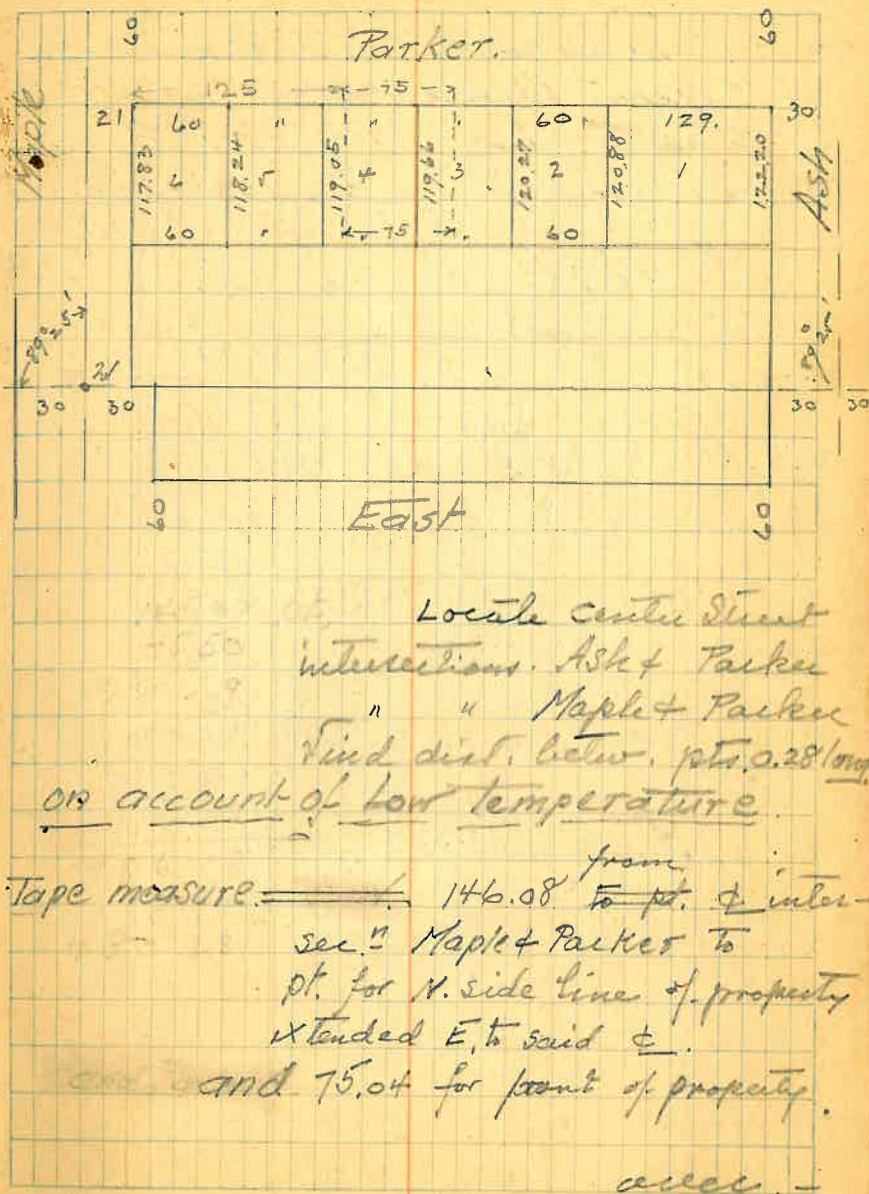 60 60
Parker.
125 75
Maple 21 60 " " " 60 129. 30
117.83 118.24 119.05 119.66 120.27 120.88 122.20 Ash
6 5 4 3 2 1
60 " 75 60
89° 25' 89°
21
30 30 30 30
60 East 60
Locate center Street
intersections. Ash & Parker
" " Maple & Parker
Find dist. betw. pts. 0.28 long
on account of low temperature
from
Tape measure 146.08 to pt. ℄ inter-
sec.n Maple & Parker to
pt. for N. side line of property
extended E, to said ℄.
and 75.04 for front of property.
over. -